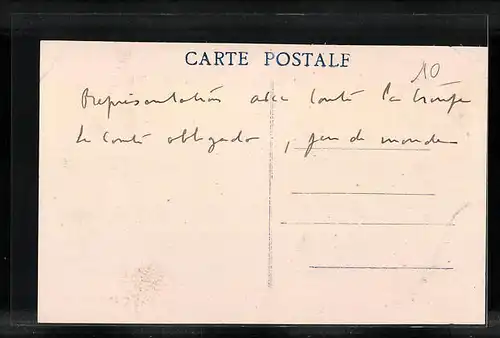 CARTE POSTALE
10
Représentation avec toute la troupe
le Comte obligado, peu de monde